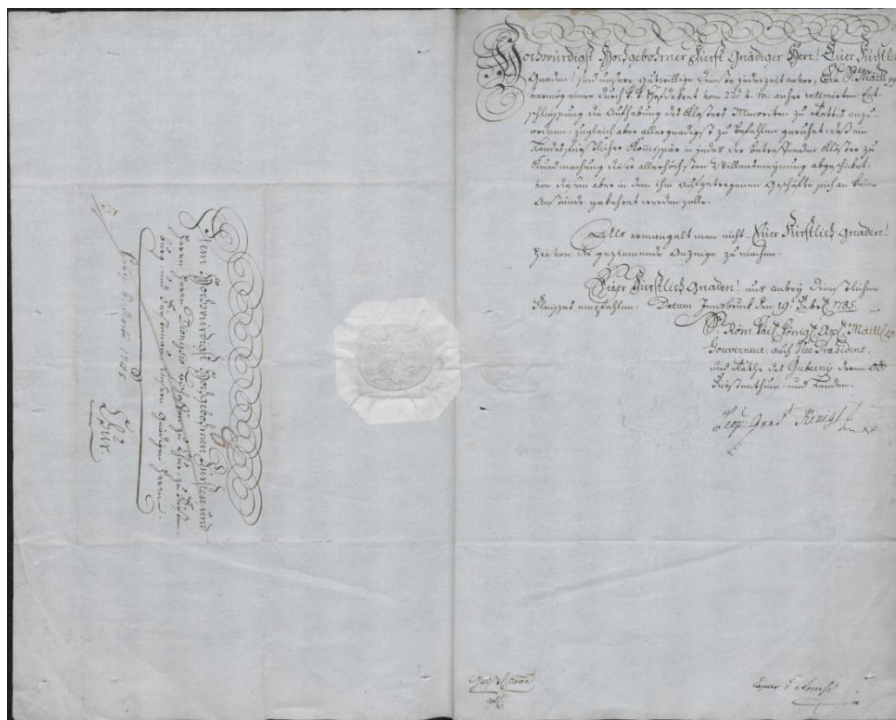 Hochwürdigst Hochgebohrner Fürst Gnädiger Herr! Euer Fürstlich
Gnaden! sind unsere gutwillige Dienste jederzeit anvor. Se Maitt
vermög einer durch Hofdekret vom 22t v. m. anher Ent-
schliessung die Aufhebung des Klosters Minoriten zu anzu-
ordnen, zugleich aber allergnädigst zu befehlen geruhet, daß ein
Landesfürstlicher Kommissär in jedes der betreffenden Klöster zu
Kundmachung dieser allerhöchsten Willensmeynung abgeschicket,
von diesem aber in dem ihm aufgetragenen Geschäfte sich an keine
Anstände gekehret werden solle.
Als ermangelt man nicht Euer Fürstlich Gnaden!
hievon die geziemende Anzeige zu machen.
Euer Fürstlich Gnaden! uns anbey dienstlichen
Fleisses empfehlen. Datum Innsbruck den 19. 1785
Röm. Kais. Königl. Apl. Maitt
Gouverneur, auch Vice Präsident,
und Räthe des Gubernij deren OÖ
Fürstenthum und Landen.
Leop. Graf Künigl
Dem Hochwürdigst Hochgebohrnen Fürsten und
Herrn Herrn Dionysio Bischofen zu Chur, zu Fürsten-
burg und Fürstenau Unserm Gnädigen Herrn.
1785
Chur.